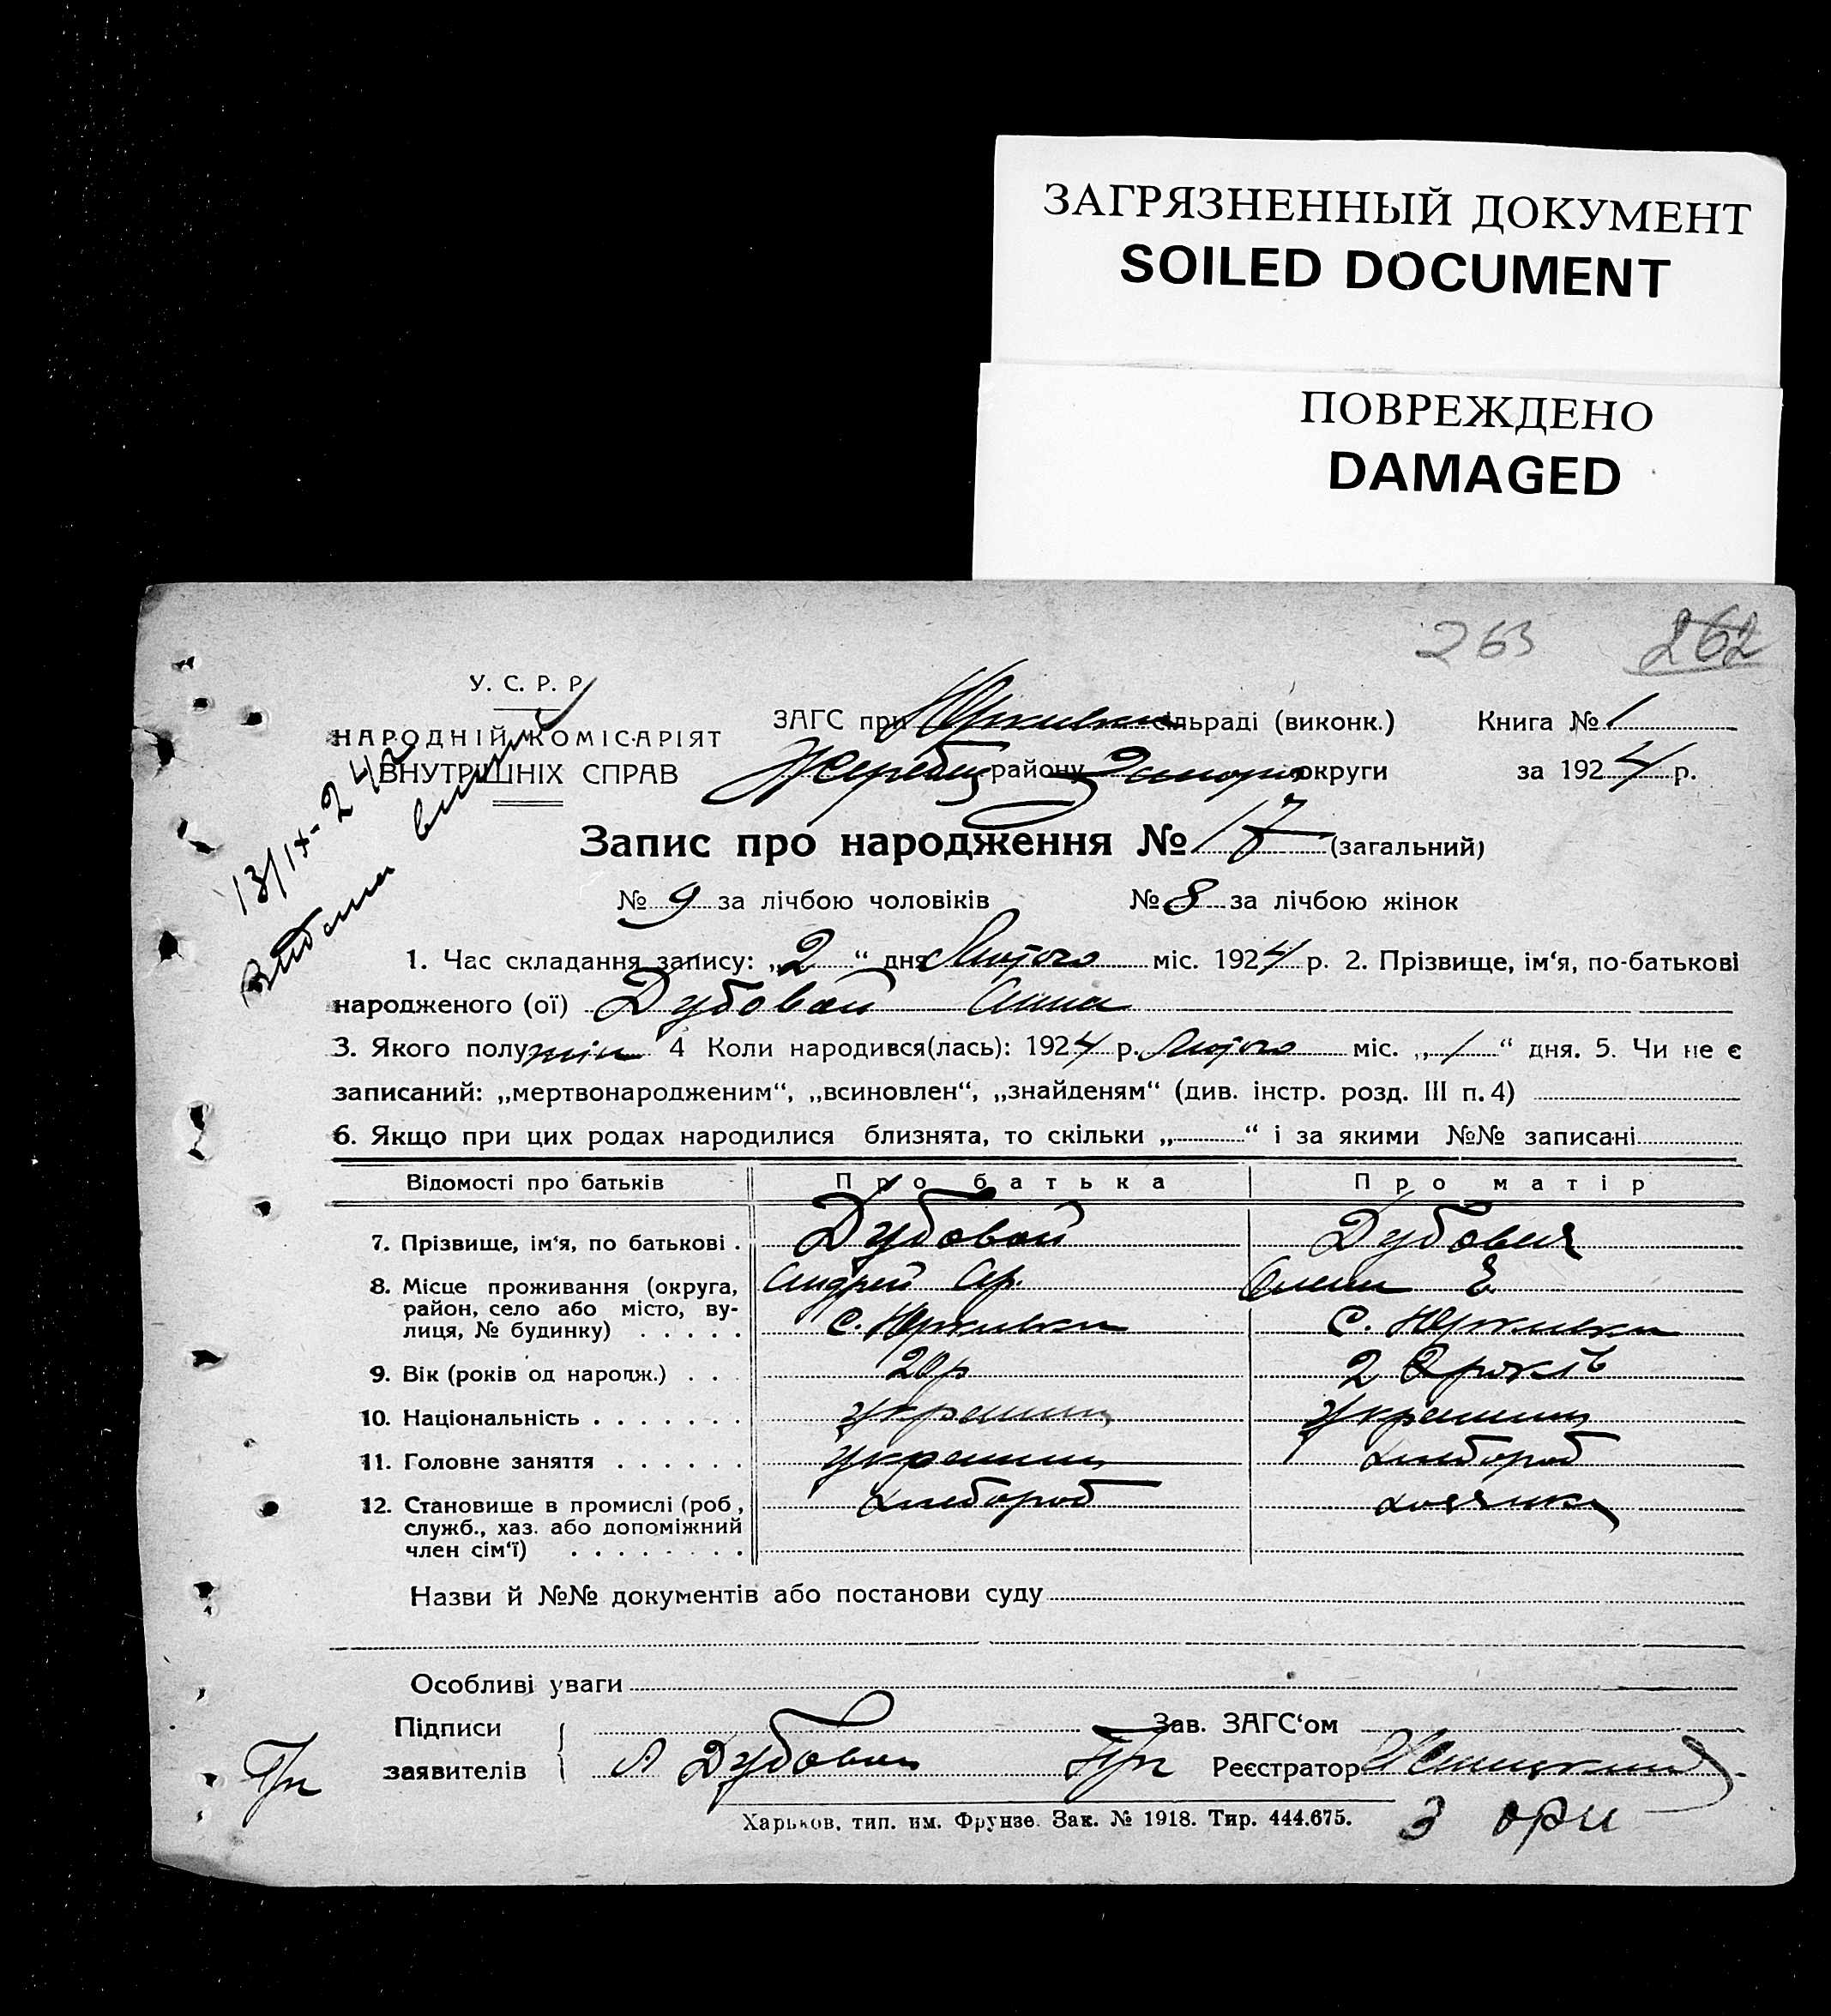 ЗАГРЯЗНЕННЫЙ ДОКУМЕНТ
SOILED DOCUMENT
ПОВРЕЖДЕНО
DAMAGED
263 262
У. С. Р. Р.
НАРОДНІЙ КОМІСАРІЯТ
ВНУТРІШНІХ СПРАВ
13/IX-242
Видана
ЗАГС при Юркивки сільраді (виконк.) Книга № 1
Жеребец району Запоріз округи за 1924 р.
Запис про народження № 17 (загальний)
№ 9 за лічбою чоловіків № 8 за лічбою жінок
1. Час складання запису: „2“ дня Лютого міс. 1924 р. 2. Прізвище, ім‘я, по-батькові
народженого (ої) Дубовай Анна
3. Якого полу жін 4 Коли народився(лась): 1924 р. Лютого міс. „1“ дня. 5. Чи не є
записаний: „мертвонародженим“, „всиновлен“, „знайденям“ (див. інстр. розд. III п. 4)
6. Якщо при цих родах народилися близнята, то скільки „ “ і за якими №№ записані
Відомості про батьків Про батька Про матір
7. Прізвище, ім‘я, по батькові . Дубовай Дубовая
8. Місце проживання (округа, Андрей Ар.
район, село або місто, ву-
лиця, № будинку) . . . . . с. Юркивки с. Юркивки
9. Вік (років од народж.) . . . 20р 20 років
10. Національність . . . . . . . украинц украинц
11. Головне заняття . . . . . . украинц хлибороб
12. Становище в промислі (роб, хлибороб хозяйка
служб., хаз. або допоміжний
член сім‘ї) . . . . . . . .
Назви й №№ документів або постанови суду
Особливі уваги
Підписи Зав. ЗАГС‘ом
заявителів А Дубовай Реєстратор
Харьков, тип. им. Фрунзе. Зак. № 1918. Тир. 444.675.
3 ори